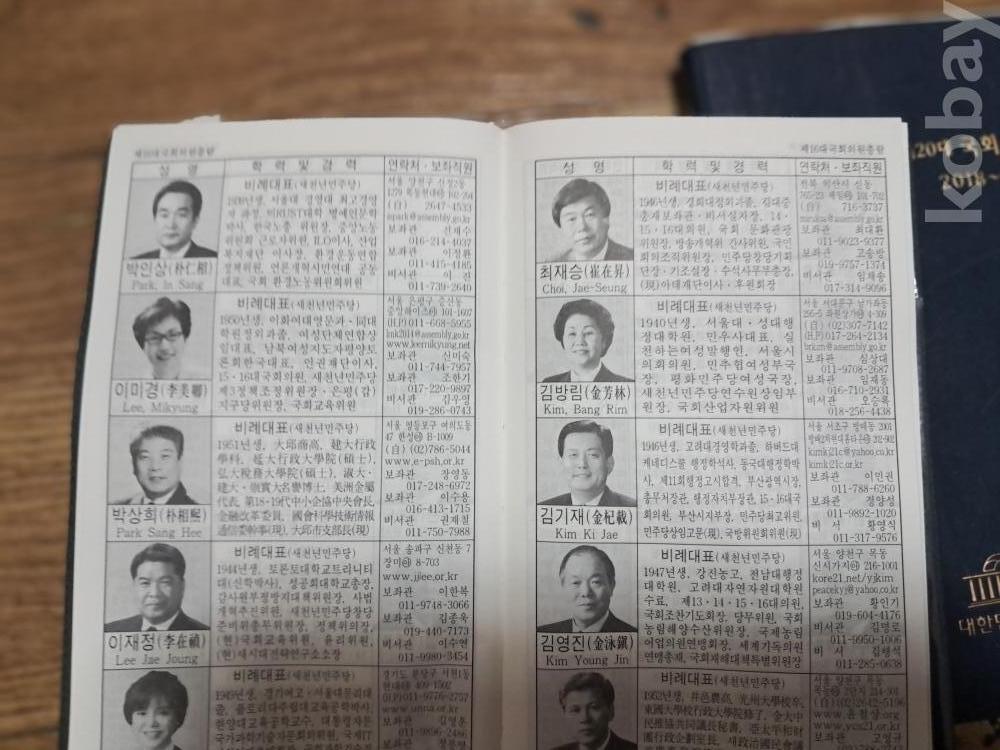 kobay
제16대국회의원총람
성 명
학 력 및 경 력
연락처·보좌직원
비례대표(새천년민주당)
박인상(朴仁相)
Park, In Sang
서울 양천구 신정2동
(自) 2647-4533
ispark@assembly.go.kr
보좌관 전재수
016-214-4037
보좌관 이정환
011-415-4185
비서관 이 진
011-739-2640
비례대표(새천년민주당)
1950년생, 이화여대영문과·同대
15·16대국회의원, 새천년민주당
제3정책조정위원장·은평(갑)
지구당위원장, 국회교육위원
이미경(李美卿)
Lee, Mikyung
서울 은평구 증산동
(H.P)011-668-5955
www.leemikyung.net
보좌관 신미숙
011-744-7957
보좌관 조한기
017-220-9897
비서관 김우영
019-286-0743
비례대표(새천년민주당)
1951년생, 大邱商高, 建大行政
學科, 延大行政大學院(碩士),
弘大稅務大學院(碩士), 淑大·
建大·崇實大名譽博士, 美洲金屬
代表, 第18·19代中小企協中央會長,
金融改革委員, 國會科學技術情報
通信委幹事(現), 大邱市支部長(現)
박상희(朴相熙)
Park Sang Hee
서울 영등포구 여의도동
47 한성㉵ B-1009
(自)(02)786-5044
www.e-psh.or.kr
보좌관 장영동
017-248-6972
보좌관 이수용
016-413-1715
비서관 권재철
011-750-7988
비례대표(새천년민주당)
1944년생, 토론토대학교트리니티
대(신학박사), 성공회대학교총장,
감사원부정방지대책위원장, 사법
개혁추진위원, 새천년민주당창당
준비위총무위원장, 정책위의장,
(現)국회교육위원, 윤리위원,
이재정(李在禎)
Lee Jae Joung
서울 송파구 신천동 7
장미㉵ 8-703
www.jjlee.or.kr
보좌관 이한복
011-9748-3066
보좌관 김종욱
019-440-7173
비서관 이수현
011-9980-3454
비례대표(새천년민주당)
1949년생, 경기여고·서울대문리대
卒, 플로리다주립대교육공학박사,
한양대교육공학교수, 대통령자문
경기도 분당구 서현1동
(H.P)011-9776-2757
www.unna.or.kr
보좌관 김영훈
011-9896-2486
제16대국회의원총람
성 명
학 력 및 경 력
연락처·보좌직원
비례대표(새천년민주당)
1946년생, 경희대정외과卒, 김대중
총재보좌관·비서실차장, 14·
15·16대의원, 국회 문화관광
위원장, 방송개혁위 간사위원, 국민
회의조직위원장, 민주당창당기획
단장·기조실장·수석사무부총장,
(現)아태재단이사·후원회장
최재승(崔在昇)
Choi, Jae-Seung
전북 익산시 신동
(自) 716-3737
보좌관 최대환
011-9623-9377
보좌관 고송방
019-9757-1374
비서관 임채송
017-314-9096
비례대표(새천년민주당)
1940년생, 서울대·성대행
정대학원, 민우사대표, 실
천하는여성발행인, 서울시
의회의원, 민추협여성부국
장, 평화민주당여성국장,
새천년민주당연수원상임부
원장, 국회산업자원위원
김방림(金芳林)
Kim, Bang Rim
서울 서대문구 남가좌동
(自)(02)307-7142
(H.P)017-264-2134
brkim@assembly.go.kr
보좌관 심상대
011-9708-2687
보좌관 임재동
016-710-2931
비서관 오승록
018-256-4438
비례대표(새천년민주당)
1946년생, 고려대경영학과졸, 하버드대
케네디스쿨 행정학석사, 동국대행정학박
사, 제11회행정고시합격, 부산광역시장,
총무처장관, 행정자치부장관, 15·16대국
회의원, 부산시지부장, 민주당최고위원,
민주당상임고문(現), 국방위원회위원(現)
김기재(金杞載)
Kim Ki Jae
서울 서초구 방배동 2001
kimk21c@yahoo.co.kr
kimk21c.or.kr
보좌관 이민권
011-788-6260
보좌관 정양성
011-9892-1020
비 서 황영식
011-317-9576
비례대표(새천년민주당)
1947년생, 강진농고, 전남대행정
대학원, 고려대자연자원대학원
수료, 제13·14·15·16대의원,
국회조찬기도회장, 당무위원, 국회
농림해양수산위원장, 국제농림
어업의원연맹회장, 세계기독의원
연맹총재, 국회재해대책특별위원장
김영진(金泳鎭)
Kim Young Jin
서울 양천구 목동
신시가지㉵ 216-1001
kore21.net/yjkim
peacekyj@yahoo.co.kr
보좌관 황인기
019-604-4176
보좌관 김명로
011-9950-1406
비 서 김행석
011-285-0638
비례대표(새천년민주당)
1952년생, 井邑農高, 光州大學校卒,
東國大學校行政大學院修了, 金大中
서울 양천구 목동
(自)(02)2642-5196
www.ycs21.or.kr